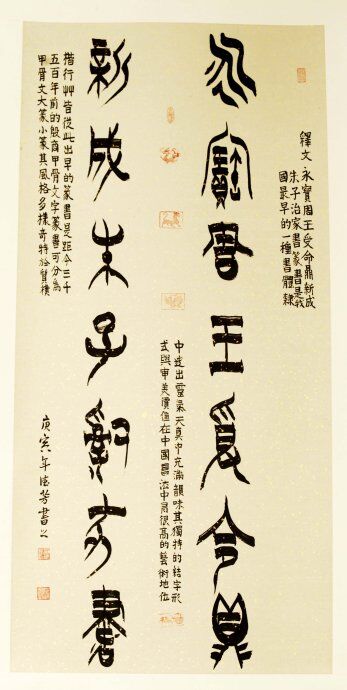 釋文·永寶周王受命鼎新成
朱子治家書篆書是我
國最早的一種書體隸
永寶周王受命鼎
新成朱子治家書
楷行艸皆從此出早的篆書是距今三千
五百年前的殷商甲骨文字篆書可分為
甲骨文大篆小篆其風格多樣奇特於質樸
中造出靈氣天真中充滿韻味其獨特的結字形
式與審美價值在中國書法中居很高的藝術地位
庚寅年德芳書之